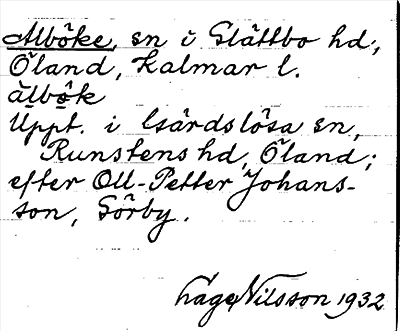 Alböke, sn i Slättbo hd;,
Öland, Kalmar l.
àlbö̀k
Uppt. i Gärdslösa sn,
Runstens hd, Öland;
efter Oll-Petter Johans-
son, Sörby.
Åage Nilsson 1932